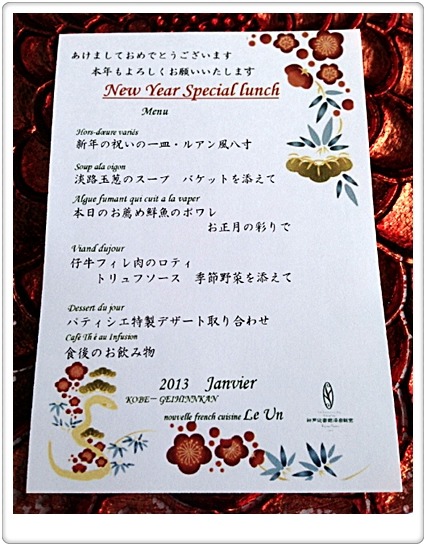 あけましておめでとうございます
本年もよろしくお願いいたします
New Year Special lunch
Menu
Hors-dœure variés
新年の祝いの一皿・ルアン風八寸
Soup ala oigon
淡路玉葱のスープ　バケットを添えて
Algue fumant qui cuit a la vaper
本日のお薦め鮮魚のポワレ
お正月の彩りで
Viand dujour
仔牛フィレ肉のロティ
トリュフソース　季節野菜を添えて
Dessert du jour
パティシエ特製デザート取り合わせ
Café Thé au Infusion
食後のお飲み物
2013 Janvier
KOBE－GEIHINNKAN
nouvelle french cuisine Le Un